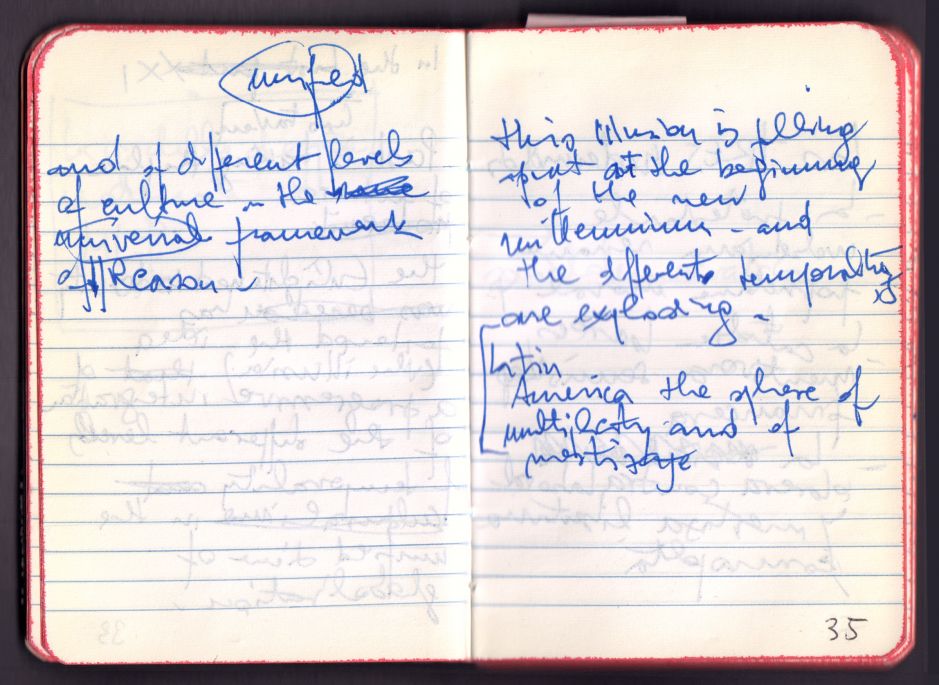 unified
and of different levels
of culture in the
universal framework
of Reason
this illusion is falling
apart at the beginning
of the new
millennium - and
the different temporalities
are exploding -
Latin
America the sphere of
multiplicity and of
mestizaje
35